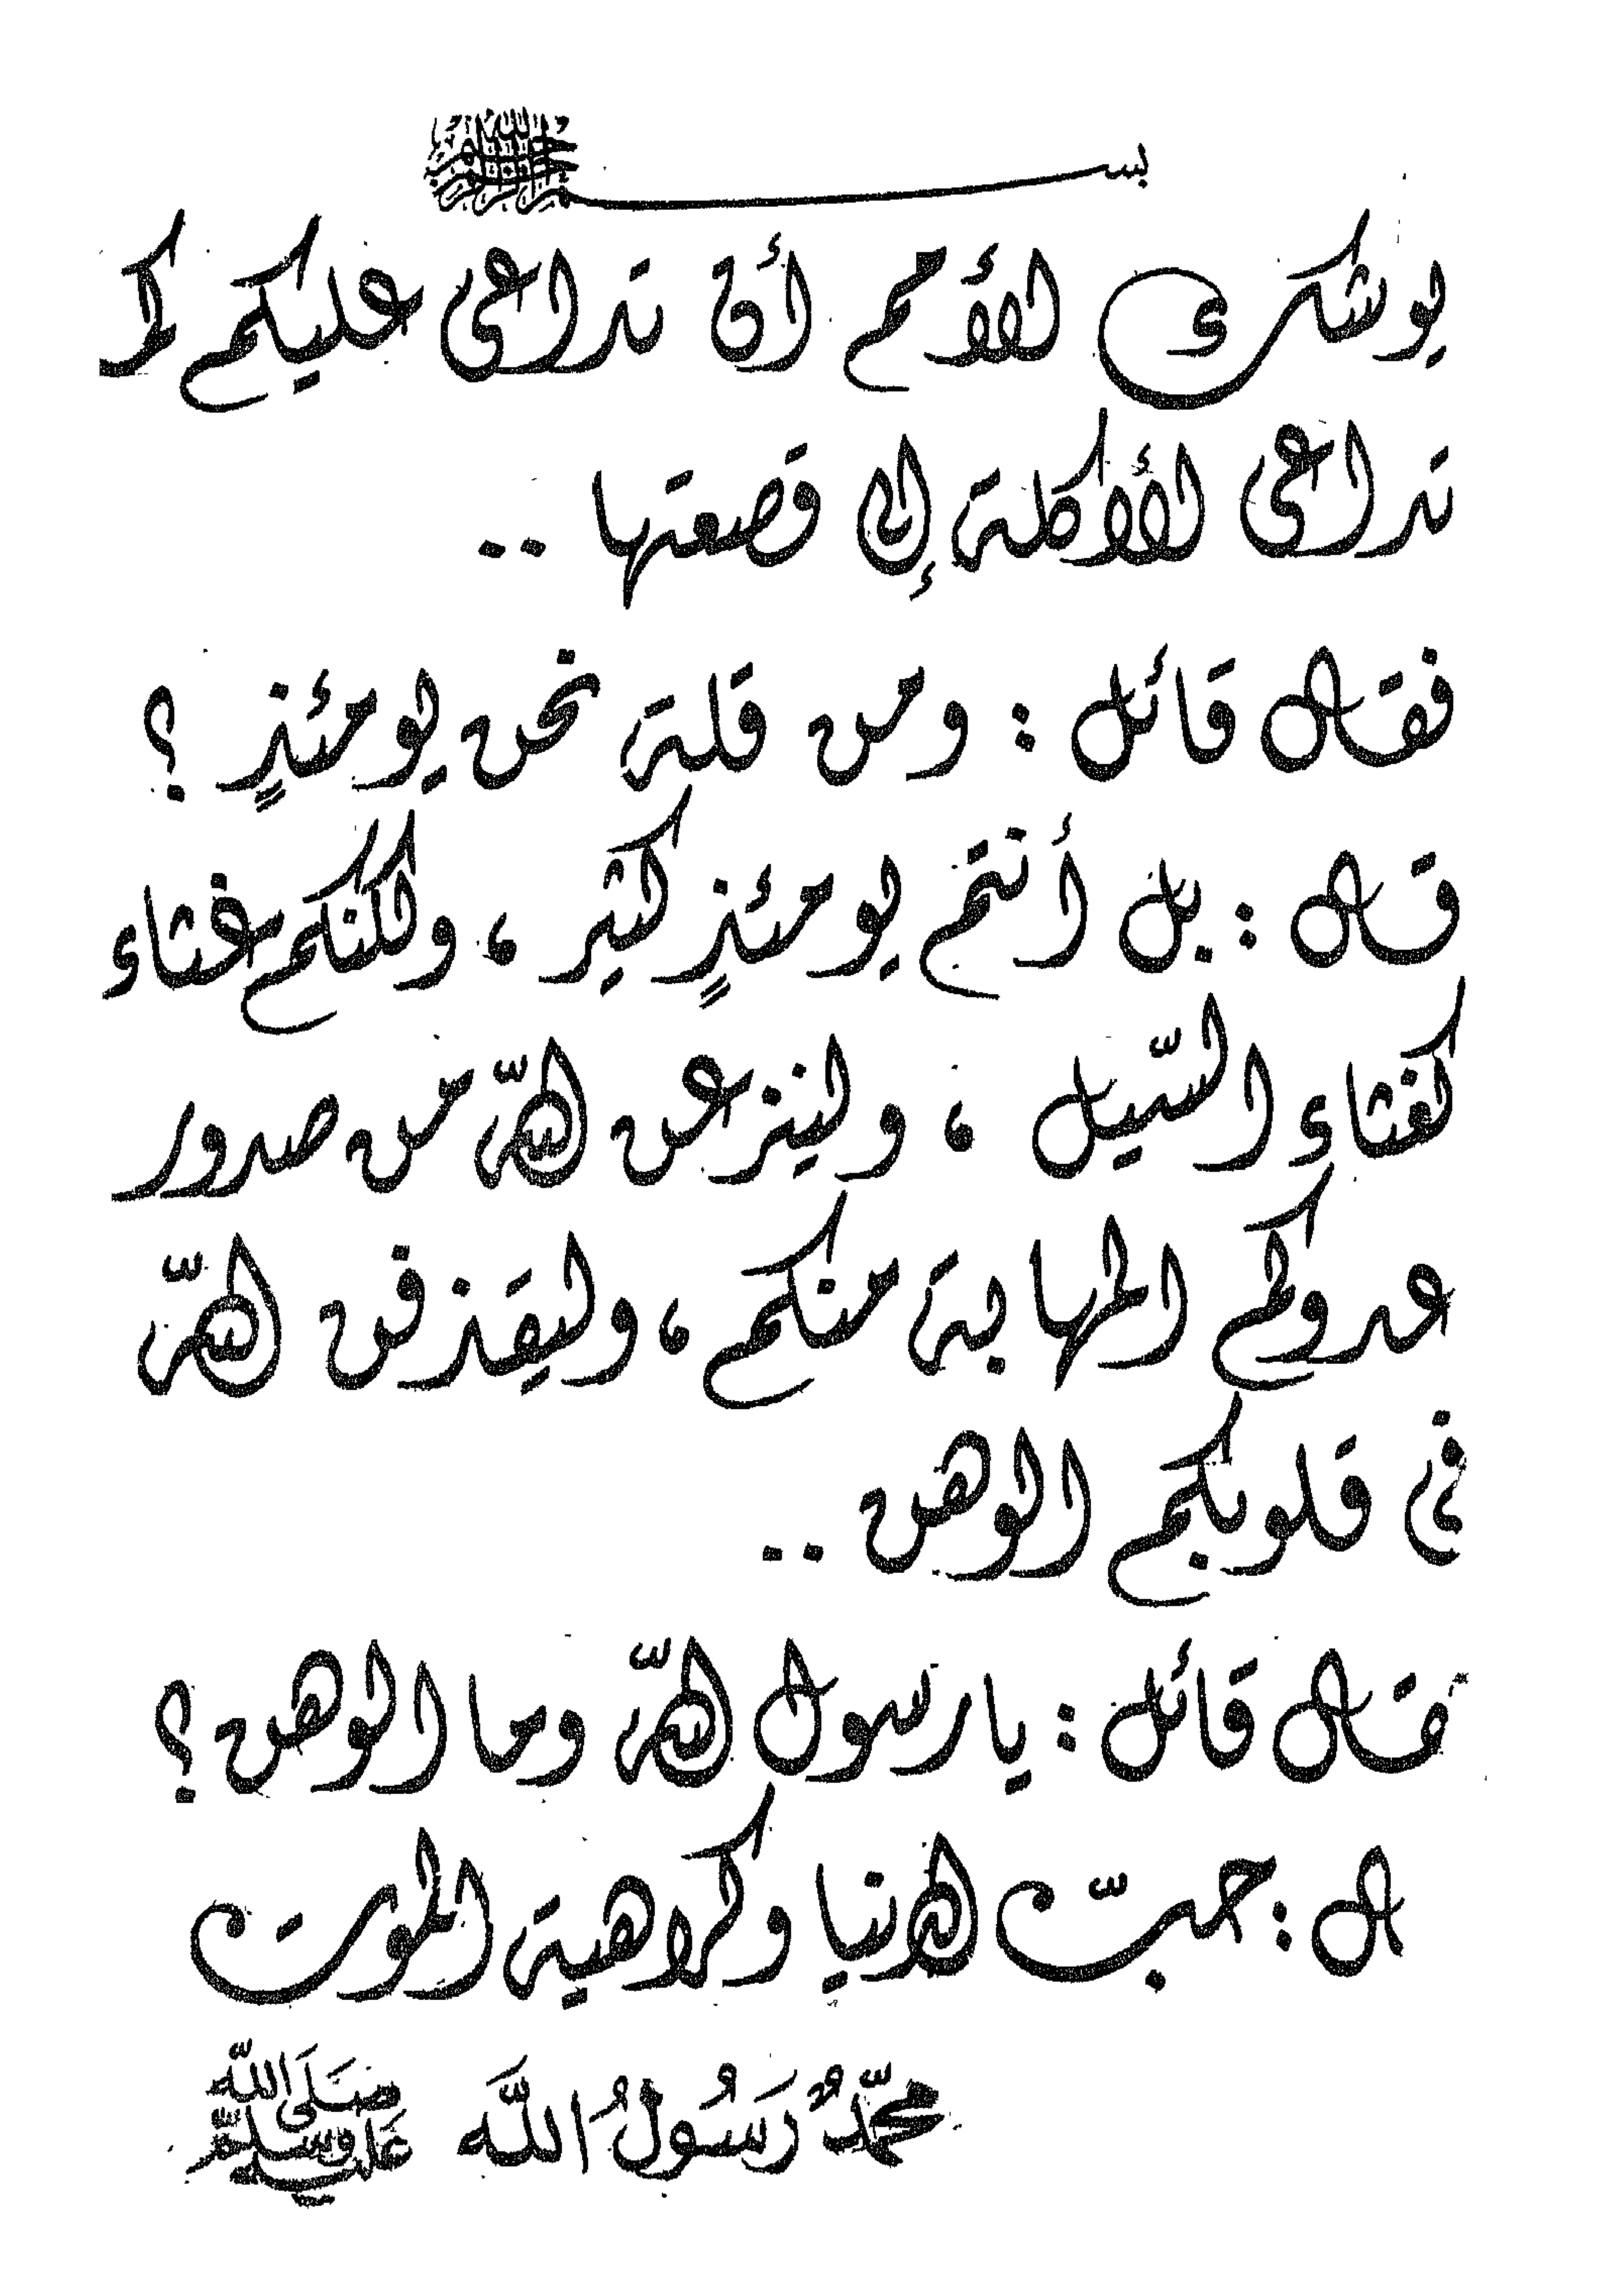 بسم الله الرحمن الرحيم
يوشك الأمم أن تداعى عليكم كما
تداعى الأكلة إلى قصعتها ..
فقال قائل : ومن قلة نحن يومئذٍ ؟
قال : بل أنتم يومئذٍ كثير ، ولكنكم غثاء
كغثاء السّيل ، ولينزعن اللّه من صدور
عدوكم المهابة منكم ، وليقذفن اللّه
في قلوبكم الوهن ..
فقال قائل : يا رسول اللّه وما الوهن ؟
ال : حبّ الدنيا وكراهية الموت
محمّدٌ رَسُولُ اللَّه صَلَّى اللّه عَلَيه وَسَلَّم